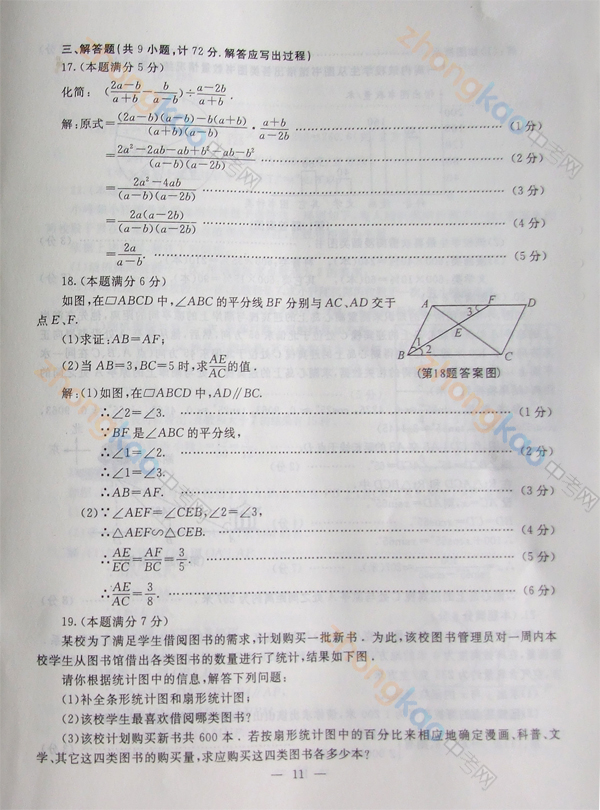 三、解答题(共9小题,计72分.解答应写出过程)
17.(本题满分5分)
化简:(\frac{2a-b}{a+b}-\frac{b}{a-b})÷\frac{a-2b}{a+b}.
解:原式=\frac{(2a-b)(a-b)-b(a+b)}{(a+b)(a-b)}·\frac{a+b}{a-2b} ……(1分)
=\frac{2a²-2ab-ab+b²-ab-b²}{(a-b)(a-2b)} ……(2分)
=\frac{2a²-4ab}{(a-b)(a-2b)} ……(3分)
=\frac{2a(a-2b)}{(a-b)(a-2b)} ……(4分)
=\frac{2a}{a-b}. ……(5分)
18.(本题满分6分)
如图,在□ABCD中,∠ABC的平分线BF分别与AC、AD交于
点E、F.
(1)求证:AB=AF;
(2)当AB=3,BC=5时,求\frac{AE}{AC}的值.
A F D
3
E
1
B 2 C
(第18题答案图)
解:(1)如图,在□ABCD中,AD∥BC.
∴∠2=∠3. ……(1分)
∵BF是∠ABC的平分线,
∴∠1=∠2. ……(2分)
∴∠1=∠3.
∴AB=AF. ……(3分)
(2)∵∠AEF=∠CEB,∠2=∠3,
∴△AEF∽△CEB. ……(4分)
∴\frac{AE}{EC}=\frac{AF}{BC}=\frac{3}{5}. ……(5分)
∴\frac{AE}{AC}=\frac{3}{8}. ……(6分)
19.(本题满分7分)
某校为了满足学生借阅图书的需求,计划购买一批新书.为此,该校图书管理员对一周内本
校学生从图书馆借出各类图书的数量进行了统计,结果如下图.
请你根据统计图中的信息,解答下列问题:
(1)补全条形统计图和扇形统计图;
(2)该校学生最喜欢借阅哪类图书?
(3)该校计划购买新书共600本.若按扇形统计图中的百分比来相应地确定漫画、科普、文
学、其它这四类图书的购买量,求应购买这四类图书各多少本?
— 11 —
zhongkao中考网
zhongkao中考网
zhongkao中考网
zhongkao中考网